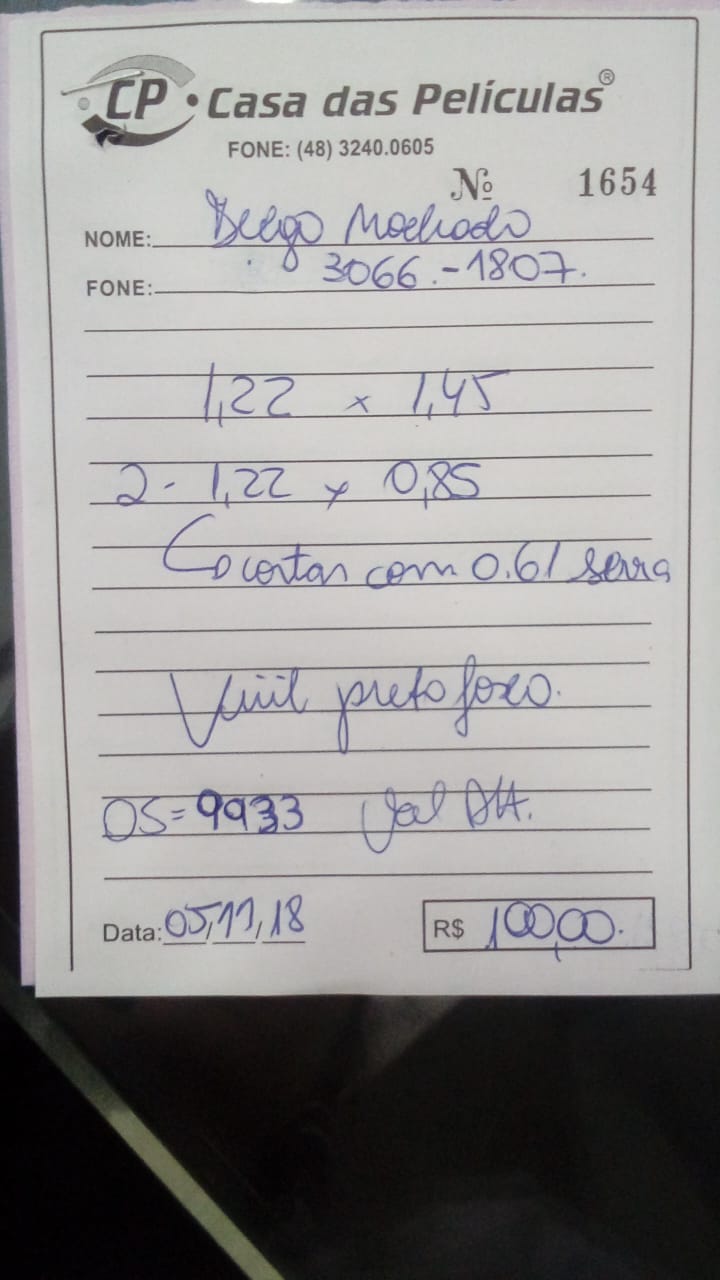 CP • Casa das Películas®
FONE: (48) 3240.0605
Nº 1654
NOME: Diego Machado
FONE: 3066.-1807.
1,22 x 1,45
2 - 1,22 x 0,85
cortar com 0.61 serra
preto fosco.
OS = 9933
Data: 05/11/18
R$ 100,00.